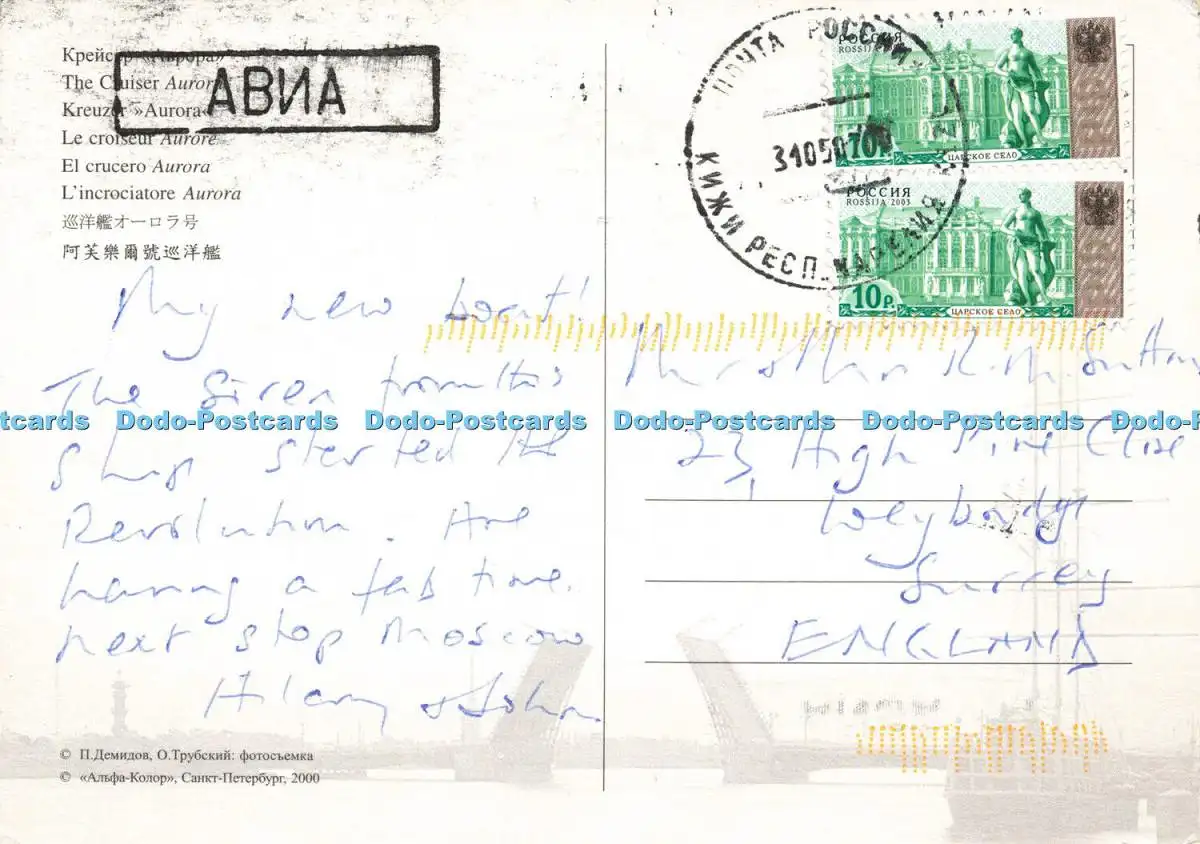 Крейсер «Аврора»
The Cruiser Aurora
Kreuzer »Aurora«
Le croiseur Aurore
El crucero Aurora
L'incrociatore Aurora
巡洋艦オーロラ号
阿芙樂爾號巡洋艦
АВИА
ПОЧТА РОССИИ
310507
КИЖИ РЕСП. КАРЕЛИЯ
РОССИЯ
ROSSIJA
ЦАРСКОЕ СЕЛО
РОССИЯ
ROSSIJA 2003
10 р.
ЦАРСКОЕ СЕЛО
My new boat!
The Siren from this
Ship started the
Revolution. Are
having a fab time.
Next stop Moscow
Hilary & John
Mr & Mrs R. M. Sutton
23, High Pine Close
Weybridge
Surrey
ENGLAND
Dodo-Postcards Dodo-Postcards Dodo-Postcards Dodo-Postcards
© П.Демидов, О.Трубский: фотосъемка
© «Альфа-Колор», Санкт-Петербург, 2000